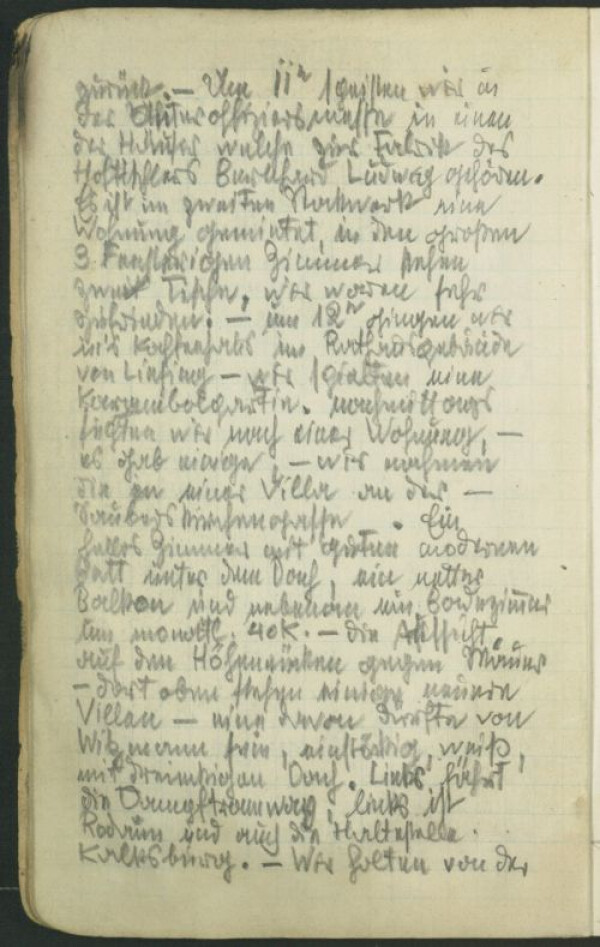 zurück. — Um 11ʰ speisten wir in
der Unteroffiziersmesse in einem
der Häuser welche zur Fabrik des
Hoftischlers Bernhard Ludwig gehören.
Es ist im zweiten Stockwerk eine
Wohnung gemietet, in dem großen
3 Fenstrigen Zimmer stehen
zwei Tische, wir waren sehr
zufrieden. — um 12ʰ gingen wir
in's Kaffeehaus im Rathausgebäude
von Liesing — wir spielten eine
Karambolpartie. nachmittags
suchten wir nach einer Wohnung, —
es gab einige, — wir nahmen
die in einer Villa an der —
Kirchengasse. Ein
helles Zimmer mit gutem modernen
Bett unter dem Dach, ein netter
Balkon und nebenan ein Badezimmer
um monatl. 40K. — die Aussicht
auf den Höhenrücken gegen Mauer
— dort oben stehen einige neuere
Villen — eine davon dürfte von
Witzmann sein, einstöckig, weiß,
mit dreieckigem Dach. Links fährt
die Dampftramway, links ist
Rodaun und auch die Haltestelle
Kalksburg. — Wir holten von der